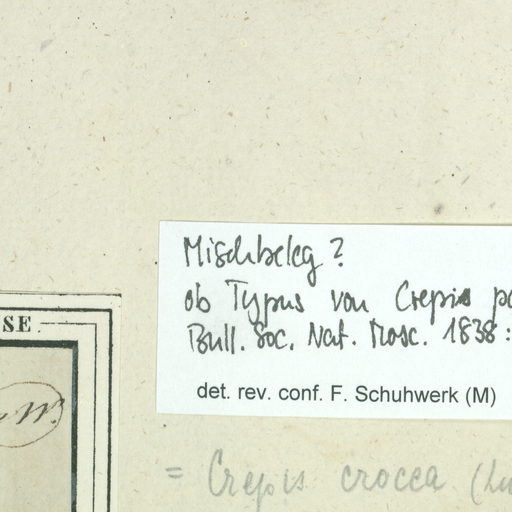 Mischbeleg?
ob Typus von Crepis pa
Bull. Soc. Nat. Mosc. 1838:
det. rev. conf. F. Schuhwerk (M)
SE
= Crepis crocea (